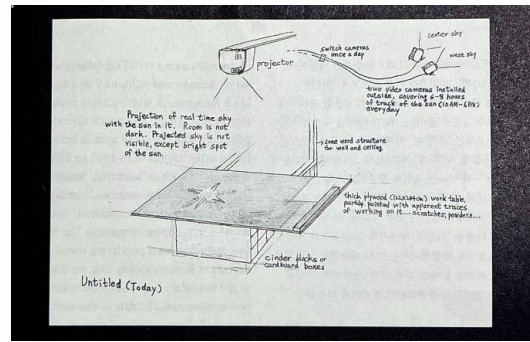 center sky
west sky
switch cameras
once a day
projector
two video cameras installed
outside, covering 6-8 hours
of track of the sun (10AM-6PM)
everyday
Projection of real time sky
with the sun in it. Room is not
dark. Projected sky is not
visible, except bright spot
of the sun.
some wood structure
for wall and ceiling
thick plywood (122x244cm) work table,
partly painted with apparent traces
of working on it... scratches, powders...
cinder blocks or
cardboard boxes
Untitled (Today)